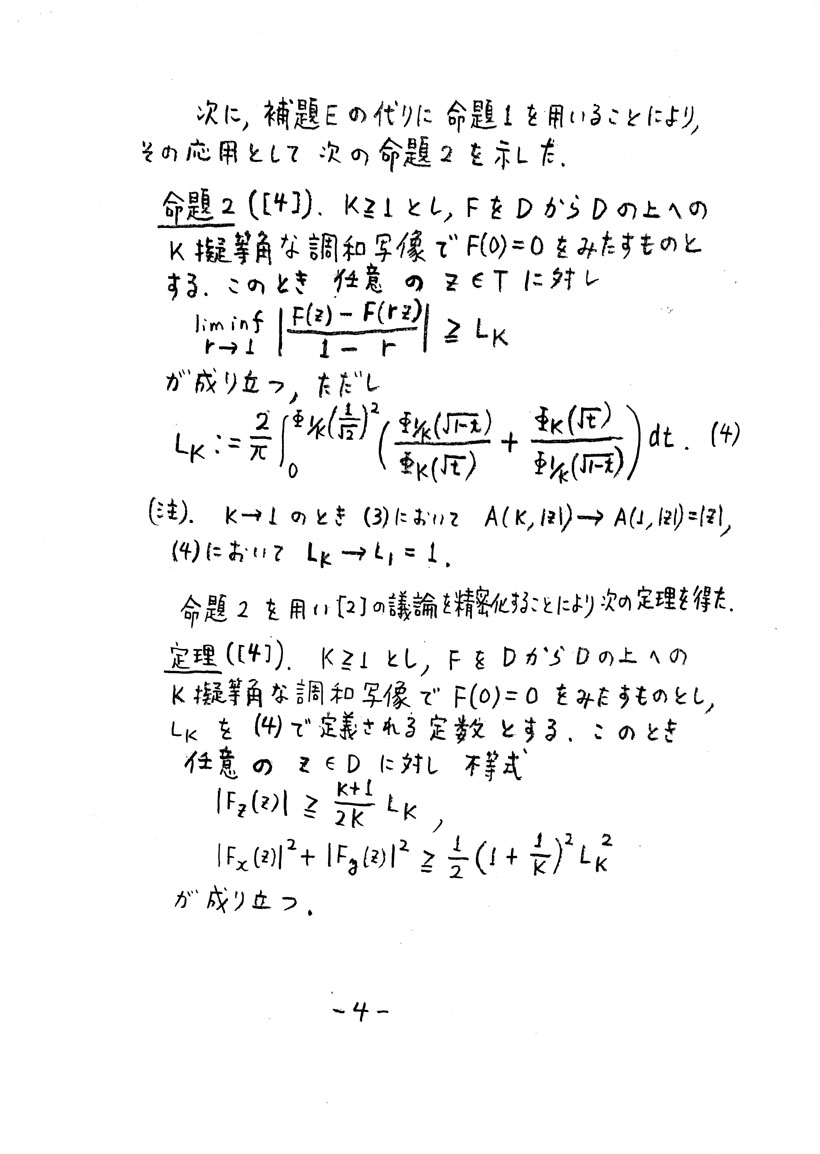 次に, 補題Eの代りに 命題1を用いることにより,
その応用として 次の命題2を示した.
命題2 ([4]). K≧1とし, FをDからDの上への
K擬等角な調和写像でF(0)=0をみたすものと
する. このとき 任意の z∈T に対し
liminf_{r→1} |(F(z) − F(rz))/(1 − r)| ≧ L_K
が成り立つ, ただし
L_K := 2/π ∫_0^{Φ_{1/K}(1/√2)^2} (Φ_{1/K}(√(1-t))/Φ_K(√t) + Φ_K(√t)/Φ_{1/K}(√(1-t))) dt. (4)
(注). K→1のとき (3)において A(K,|z|)→A(1,|z|)=|z|,
(4)において L_K→L_1=1.
命題2を用い[2]の議論を精密化することにより次の定理を得た.
定理 ([4]). K≧1とし, FをDからDの上への
K擬等角な調和写像でF(0)=0をみたすものとし,
L_K を (4)で定義される定数とする. このとき
任意の z∈D に対し 不等式
|F_z(z)| ≧ (K+1)/(2K) L_K,
|F_x(z)|^2 + |F_y(z)|^2 ≧ 1/2 (1 + 1/K)^2 L_K^2
が成り立つ.
-4-